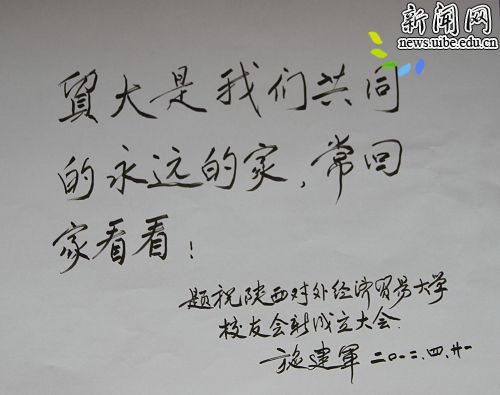 新闻网
news.uibe.edu.cn
貿大是我们共同
的永远的家，常回
家看看！
题祝陕西对外经济贸易大学
校友会新成立大会
施建軍 二〇一二.四.廿一